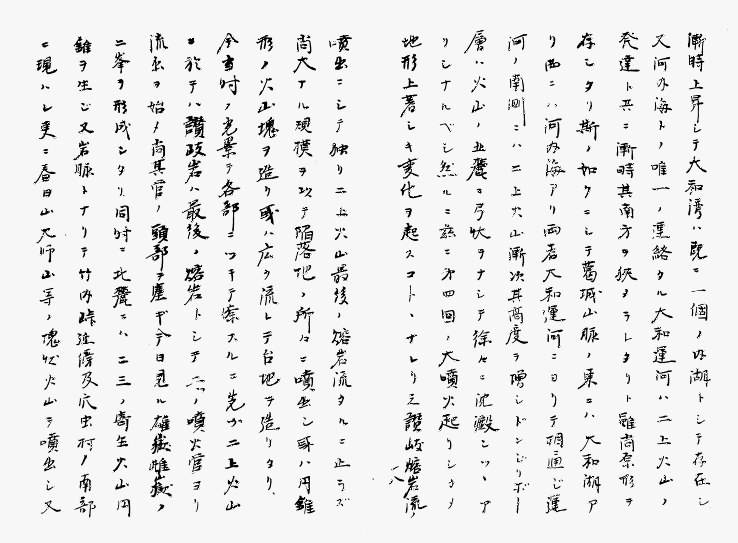 漸時上昇シテ大和湾ハ既ニ一個ノ内湖トシテ存在シ
又河内海トノ唯一ノ連絡タル大和運河ハ二上火山ノ
発達ト共ニ漸時其南方ヲ狭メラレタリト雖尚原形ヲ
存シタリ斯ノ如クニシテ葛城山脈ノ東ニハ大和湖ア
リ西ニハ河内海アリ両者大和運河ニヨリテ相通ジ運
河ノ南側ニハ二上火山漸次其高度ヲ増シドンジリボー
層ハ火山ノ北麓ニ弓状ヲナシテ徐々ニ沈澱シツヽア
リシナルベシ然ルニ茲ニ第四回ノ大噴火起リシタメ
地形上著シキ変化ヲ起スコトヽナレリ之讃岐熔岩流ノ
一八
噴出ニシテ独リニ上火山最後ノ熔岩流タルニ止ラズ
尚大ナル規模ヲ以テ陥落地ノ所々ニ噴出シ或ハ円錐
形ノ火山塊ヲ造リ或ハ広ク流レテ台地ヲ造リタリ
今当時ノ光景ヲ各部ニツキテ察スルニ先ヅ二上火山
ニ於テハ讃岐岩ハ最後ノ熔岩トシテ二ツノ噴火管ヨリ
流出ヲ始メ尚其管ノ頭部ヲ塞ギ今日見ル雄嶽雌嶽ノ
二峯ヲ形成シタリ同時ニ北麓ニハ二三ノ寄生火山円
錐ヲ生ジ又岩脈トナリテ竹内峠近傍及穴虫村ノ南部
ニ現ハレ更ニ春日山大師山等ノ塊状火山ヲ噴出シ又